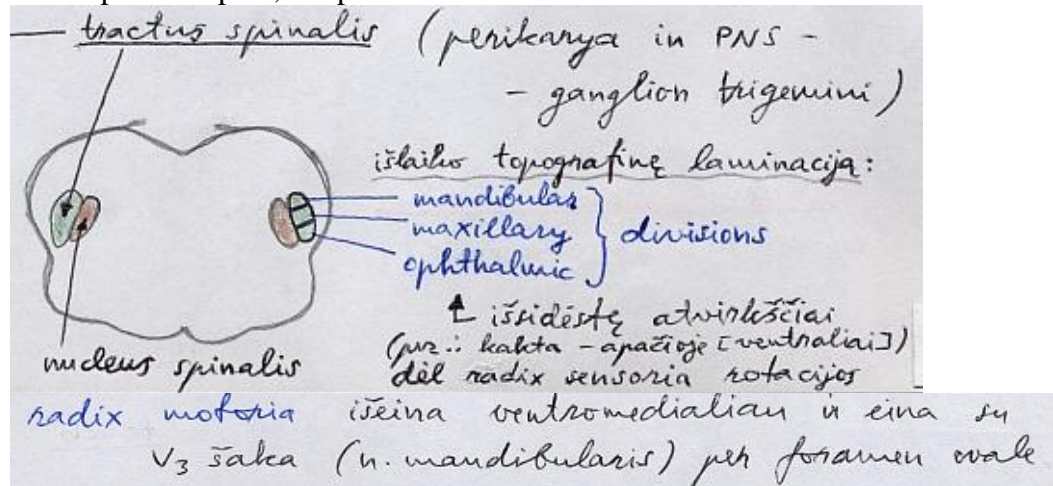 tractus spinalis (perikarya in PNS -
- ganglion trigemini)
išlaiko topografinę laminaciją:
mandibular
maxillary
ophthalmic
divisions
išsidėstę atvirkščiai
(pvz.: kakta - apačioje [ventraliai])
dėl radix sensoria rotacijos
nucleus spinalis
radix motoria išeina ventromedialiau ir eina su
V3 šaka (n. mandibularis) per foramen ovale